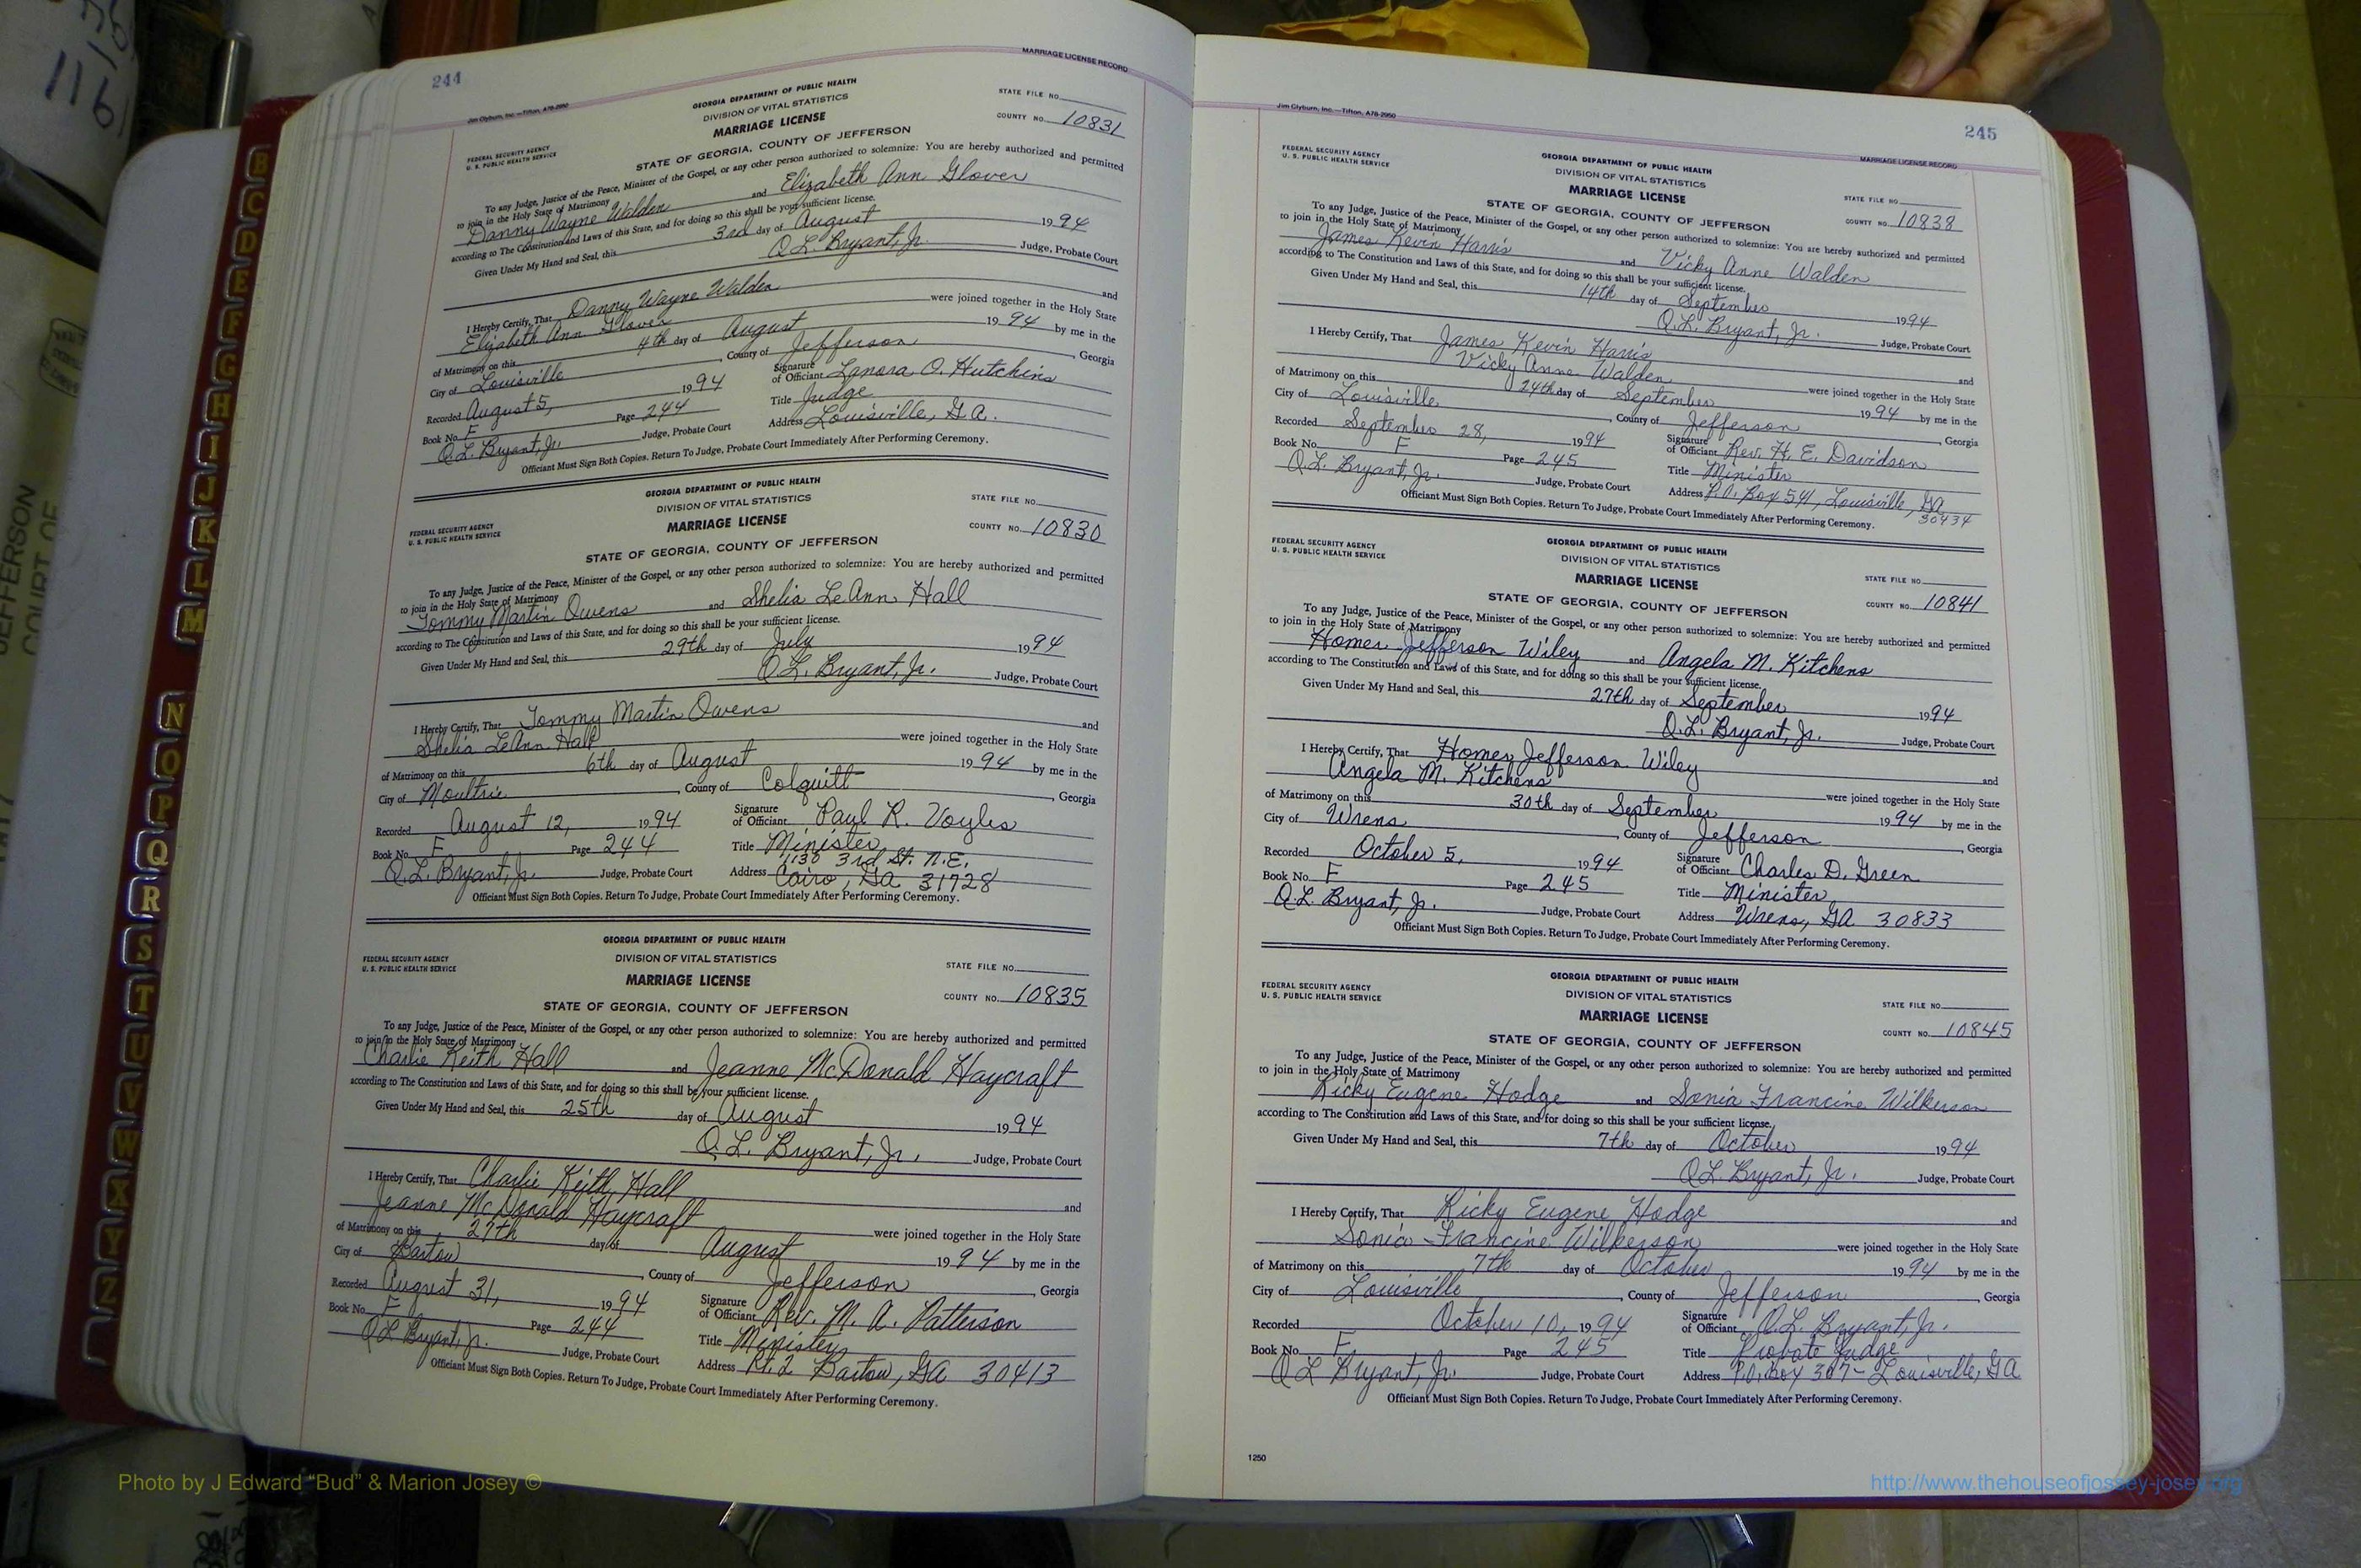 244
MARRIAGE LICENSE RECORD
Jim Clyburn, Inc.—Tifton, A78-2950
GEORGIA DEPARTMENT OF PUBLIC HEALTH
DIVISION OF VITAL STATISTICS
MARRIAGE LICENSE
STATE FILE NO.
COUNTY NO. 10831
FEDERAL SECURITY AGENCY
U. S. PUBLIC HEALTH SERVICE
STATE OF GEORGIA, COUNTY OF JEFFERSON
To any Judge, Justice of the Peace, Minister of the Gospel, or any other person authorized to solemnize: You are hereby authorized and permitted
to join in the Holy State of Matrimony
Danny Wayne Walden and Elizabeth Ann Glover
according to The Constitution and Laws of this State, and for doing so this shall be your sufficient license.
Given Under My Hand and Seal, this 3rd day of August 1994
Q.L. Bryant, Jr. Judge, Probate Court
I Hereby Certify, That Danny Wayne Walden and
Elizabeth Ann Glover were joined together in the Holy State
of Matrimony on this 4th day of August 1994 by me in the
City of Louisville, County of Jefferson, Georgia
Recorded August 5, 1994 Signature of Officiant Lanora O. Hutchins
Book No. F Page 244 Title Judge
Q.L. Bryant, Jr. Judge, Probate Court Address Louisville, GA.
Officiant Must Sign Both Copies. Return To Judge, Probate Court Immediately After Performing Ceremony.
GEORGIA DEPARTMENT OF PUBLIC HEALTH
DIVISION OF VITAL STATISTICS
MARRIAGE LICENSE
STATE FILE NO.
COUNTY NO. 10830
FEDERAL SECURITY AGENCY
U. S. PUBLIC HEALTH SERVICE
STATE OF GEORGIA, COUNTY OF JEFFERSON
To any Judge, Justice of the Peace, Minister of the Gospel, or any other person authorized to solemnize: You are hereby authorized and permitted
to join in the Holy State of Matrimony
Tommy Martin Owens and Shelia LeAnn Hall
according to The Constitution and Laws of this State, and for doing so this shall be your sufficient license.
Given Under My Hand and Seal, this 29th day of July 1994
Q.L. Bryant, Jr. Judge, Probate Court
I Hereby Certify, That Tommy Martin Owens and
Shelia LeAnn Hall were joined together in the Holy State
of Matrimony on this 6th day of August 1994 by me in the
City of Moultrie, County of Colquitt, Georgia
Recorded August 12, 1994 Signature of Officiant Paul R. Voyles
Book No. F Page 244 Title Minister
1130 3rd St. N.E.
Q.L. Bryant, Jr. Judge, Probate Court Address Cairo, GA 31728
Officiant Must Sign Both Copies. Return To Judge, Probate Court Immediately After Performing Ceremony.
GEORGIA DEPARTMENT OF PUBLIC HEALTH
DIVISION OF VITAL STATISTICS
MARRIAGE LICENSE
STATE FILE NO.
COUNTY NO. 10835
FEDERAL SECURITY AGENCY
U. S. PUBLIC HEALTH SERVICE
STATE OF GEORGIA, COUNTY OF JEFFERSON
To any Judge, Justice of the Peace, Minister of the Gospel, or any other person authorized to solemnize: You are hereby authorized and permitted
to join in the Holy State of Matrimony
Charlie Keith Hall and Jeanne McDonald Haycraft
according to The Constitution and Laws of this State, and for doing so this shall be your sufficient license.
Given Under My Hand and Seal, this 25th day of August 1994
Q.L. Bryant, Jr. Judge, Probate Court
I Hereby Certify, That Charlie Keith Hall and
Jeanne McDonald Haycraft were joined together in the Holy State
of Matrimony on this 27th day of August 1994 by me in the
City of Bartow, County of Jefferson, Georgia
Recorded August 31, 1994 Signature of Officiant Rev. M. A. Patterson
Book No. F Page 244 Title Minister
Q.L. Bryant, Jr. Judge, Probate Court Address Rt. 2 Bartow, GA 30413
Officiant Must Sign Both Copies. Return To Judge, Probate Court Immediately After Performing Ceremony.
Jim Clyburn, Inc.—Tifton, A78-2950
245
MARRIAGE LICENSE RECORD
GEORGIA DEPARTMENT OF PUBLIC HEALTH
DIVISION OF VITAL STATISTICS
MARRIAGE LICENSE
STATE FILE NO.
COUNTY NO. 10838
FEDERAL SECURITY AGENCY
U. S. PUBLIC HEALTH SERVICE
STATE OF GEORGIA, COUNTY OF JEFFERSON
To any Judge, Justice of the Peace, Minister of the Gospel, or any other person authorized to solemnize: You are hereby authorized and permitted
to join in the Holy State of Matrimony
James Kevin Harris and Vicky Anne Walden
according to The Constitution and Laws of this State, and for doing so this shall be your sufficient license.
Given Under My Hand and Seal, this 14th day of September 1994
Q.L. Bryant, Jr. Judge, Probate Court
I Hereby Certify, That James Kevin Harris and
Vicky Anne Walden were joined together in the Holy State
of Matrimony on this 24th day of September 1994 by me in the
City of Louisville, County of Jefferson, Georgia
Recorded September 28, 1994 Signature of Officiant Rev. H. E. Davidson
Book No. F Page 245 Title Minister
Q.L. Bryant, Jr. Judge, Probate Court Address P.O. Box 541, Louisville, GA
30434
Officiant Must Sign Both Copies. Return To Judge, Probate Court Immediately After Performing Ceremony.
GEORGIA DEPARTMENT OF PUBLIC HEALTH
DIVISION OF VITAL STATISTICS
MARRIAGE LICENSE
STATE FILE NO.
COUNTY NO. 10841
FEDERAL SECURITY AGENCY
U. S. PUBLIC HEALTH SERVICE
STATE OF GEORGIA, COUNTY OF JEFFERSON
To any Judge, Justice of the Peace, Minister of the Gospel, or any other person authorized to solemnize: You are hereby authorized and permitted
to join in the Holy State of Matrimony
Homer Jefferson Wiley and Angela M. Kitchens
according to The Constitution and Laws of this State, and for doing so this shall be your sufficient license.
Given Under My Hand and Seal, this 27th day of September 1994
Q.L. Bryant, Jr. Judge, Probate Court
I Hereby Certify, That Homer Jefferson Wiley and
Angela M. Kitchens were joined together in the Holy State
of Matrimony on this 30th day of September 1994 by me in the
City of Wrens, County of Jefferson, Georgia
Recorded October 5, 1994 Signature of Officiant Charles D. Green
Book No. F Page 245 Title Minister
Q.L. Bryant, Jr. Judge, Probate Court Address Wrens, GA 30833
Officiant Must Sign Both Copies. Return To Judge, Probate Court Immediately After Performing Ceremony.
GEORGIA DEPARTMENT OF PUBLIC HEALTH
DIVISION OF VITAL STATISTICS
MARRIAGE LICENSE
STATE FILE NO.
COUNTY NO. 10845
FEDERAL SECURITY AGENCY
U. S. PUBLIC HEALTH SERVICE
STATE OF GEORGIA, COUNTY OF JEFFERSON
To any Judge, Justice of the Peace, Minister of the Gospel, or any other person authorized to solemnize: You are hereby authorized and permitted
to join in the Holy State of Matrimony
Ricky Eugene Hodge and Sonia Francine Wilkerson
according to The Constitution and Laws of this State, and for doing so this shall be your sufficient license.
Given Under My Hand and Seal, this 7th day of October 1994
Q.L. Bryant, Jr. Judge, Probate Court
I Hereby Certify, That Ricky Eugene Hodge and
Sonia Francine Wilkerson were joined together in the Holy State
of Matrimony on this 7th day of October 1994 by me in the
City of Louisville, County of Jefferson, Georgia
Recorded October 10, 1994 Signature of Officiant Q.L. Bryant, Jr.
Book No. F Page 245 Title Probate Judge
Q L Bryant, Jr. Judge, Probate Court Address P.O. Box 307- Louisville, GA
Officiant Must Sign Both Copies. Return To Judge, Probate Court Immediately After Performing Ceremony.
1250
B
C
D
E
F
G
H
I
J
K
L
M
N
O
P
Q
R
S
T
U
V
W
X
Y
Z
Photo by J Edward “Bud” & Marion Josey ©
http://www.thehouseofjossey-josey.org